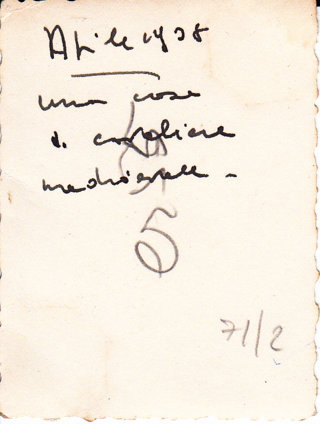 Aprile 1938
una casa
di cavaliere
medioevale -
5
71/2